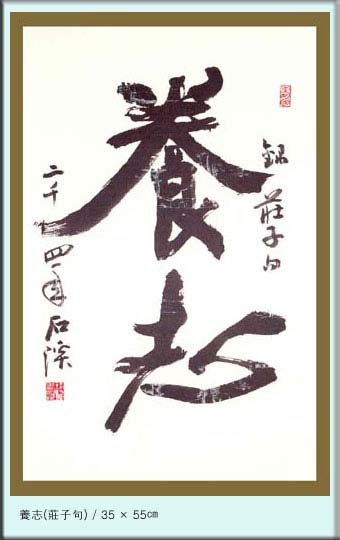 錄莊子句
養志
二千四年石溪
養志(莊子句) / 35 × 55㎝